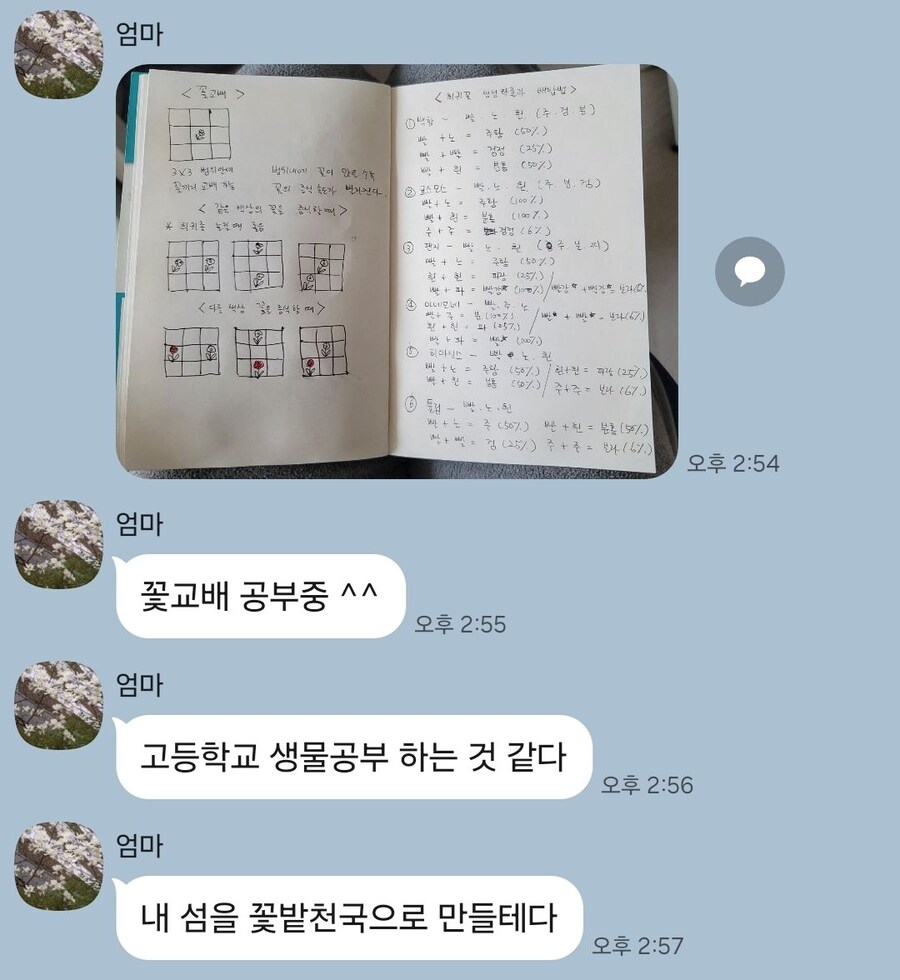 엄마
<꽃교배>
3x3 범위안에
꽃끼리 교배 가능
범위내에 꽃이 많을수록
꽃의 증식 속도가 빨라진다.
<같은 색상의 꽃을 증식할때>
* 희귀종 늘릴때 좋음
<다른 색상 꽃을 증식할때>
<희귀꽃 생성확률과 배합법>
① 백합 - 빨. 노. 흰 (주.검.분)
빨 + 노 = 주황 (50%)
빨 + 빨 = 검정 (25%)
빨 + 흰 = 분홍 (50%)
② 코스모스 - 빨.노.흰 (주.분.검)
빨 + 노 = 주황 (100%)
빨 + 흰 = 분홍 (100%)
주 + 주 = 검정 (6%)
③ 팬지 - 빨.노.흰
빨 + 노 = 주황 (50%)
흰 + 흰 = 파랑 (25%)
빨 + 파 = 빨강* (100%) / 빨강* + 빨강* =
④ 아네모네 - 빨.주.노
빨 + 주 = 분 (100%)
흰 + 흰 = 파 (25%) / 빨* + 빨* = 보라(6%)
빨 + 파 = 빨* (100%)
⑤ 히아신스 - 빨 노. 흰
빨 + 노 = 주황 (50%) / 흰+흰 = 파랑 (25%)
빨 + 흰 = 분홍 (50%) / 주+주 = 보라 (6%)
⑥ 튤립 - 빨.노.흰
빨 + 노 = 주 (50%) 빨 + 흰 = 분홍 (50%)
빨 + 빨 = 검 (25%) 주 + 주 = 보라 (6%)
오후 2:54
엄마
꽃교배 공부중 ^^
오후 2:55
엄마
고등학교 생물공부 하는 것 같다
오후 2:56
엄마
내 섬을 꽃밭천국으로 만들테다
오후 2:57